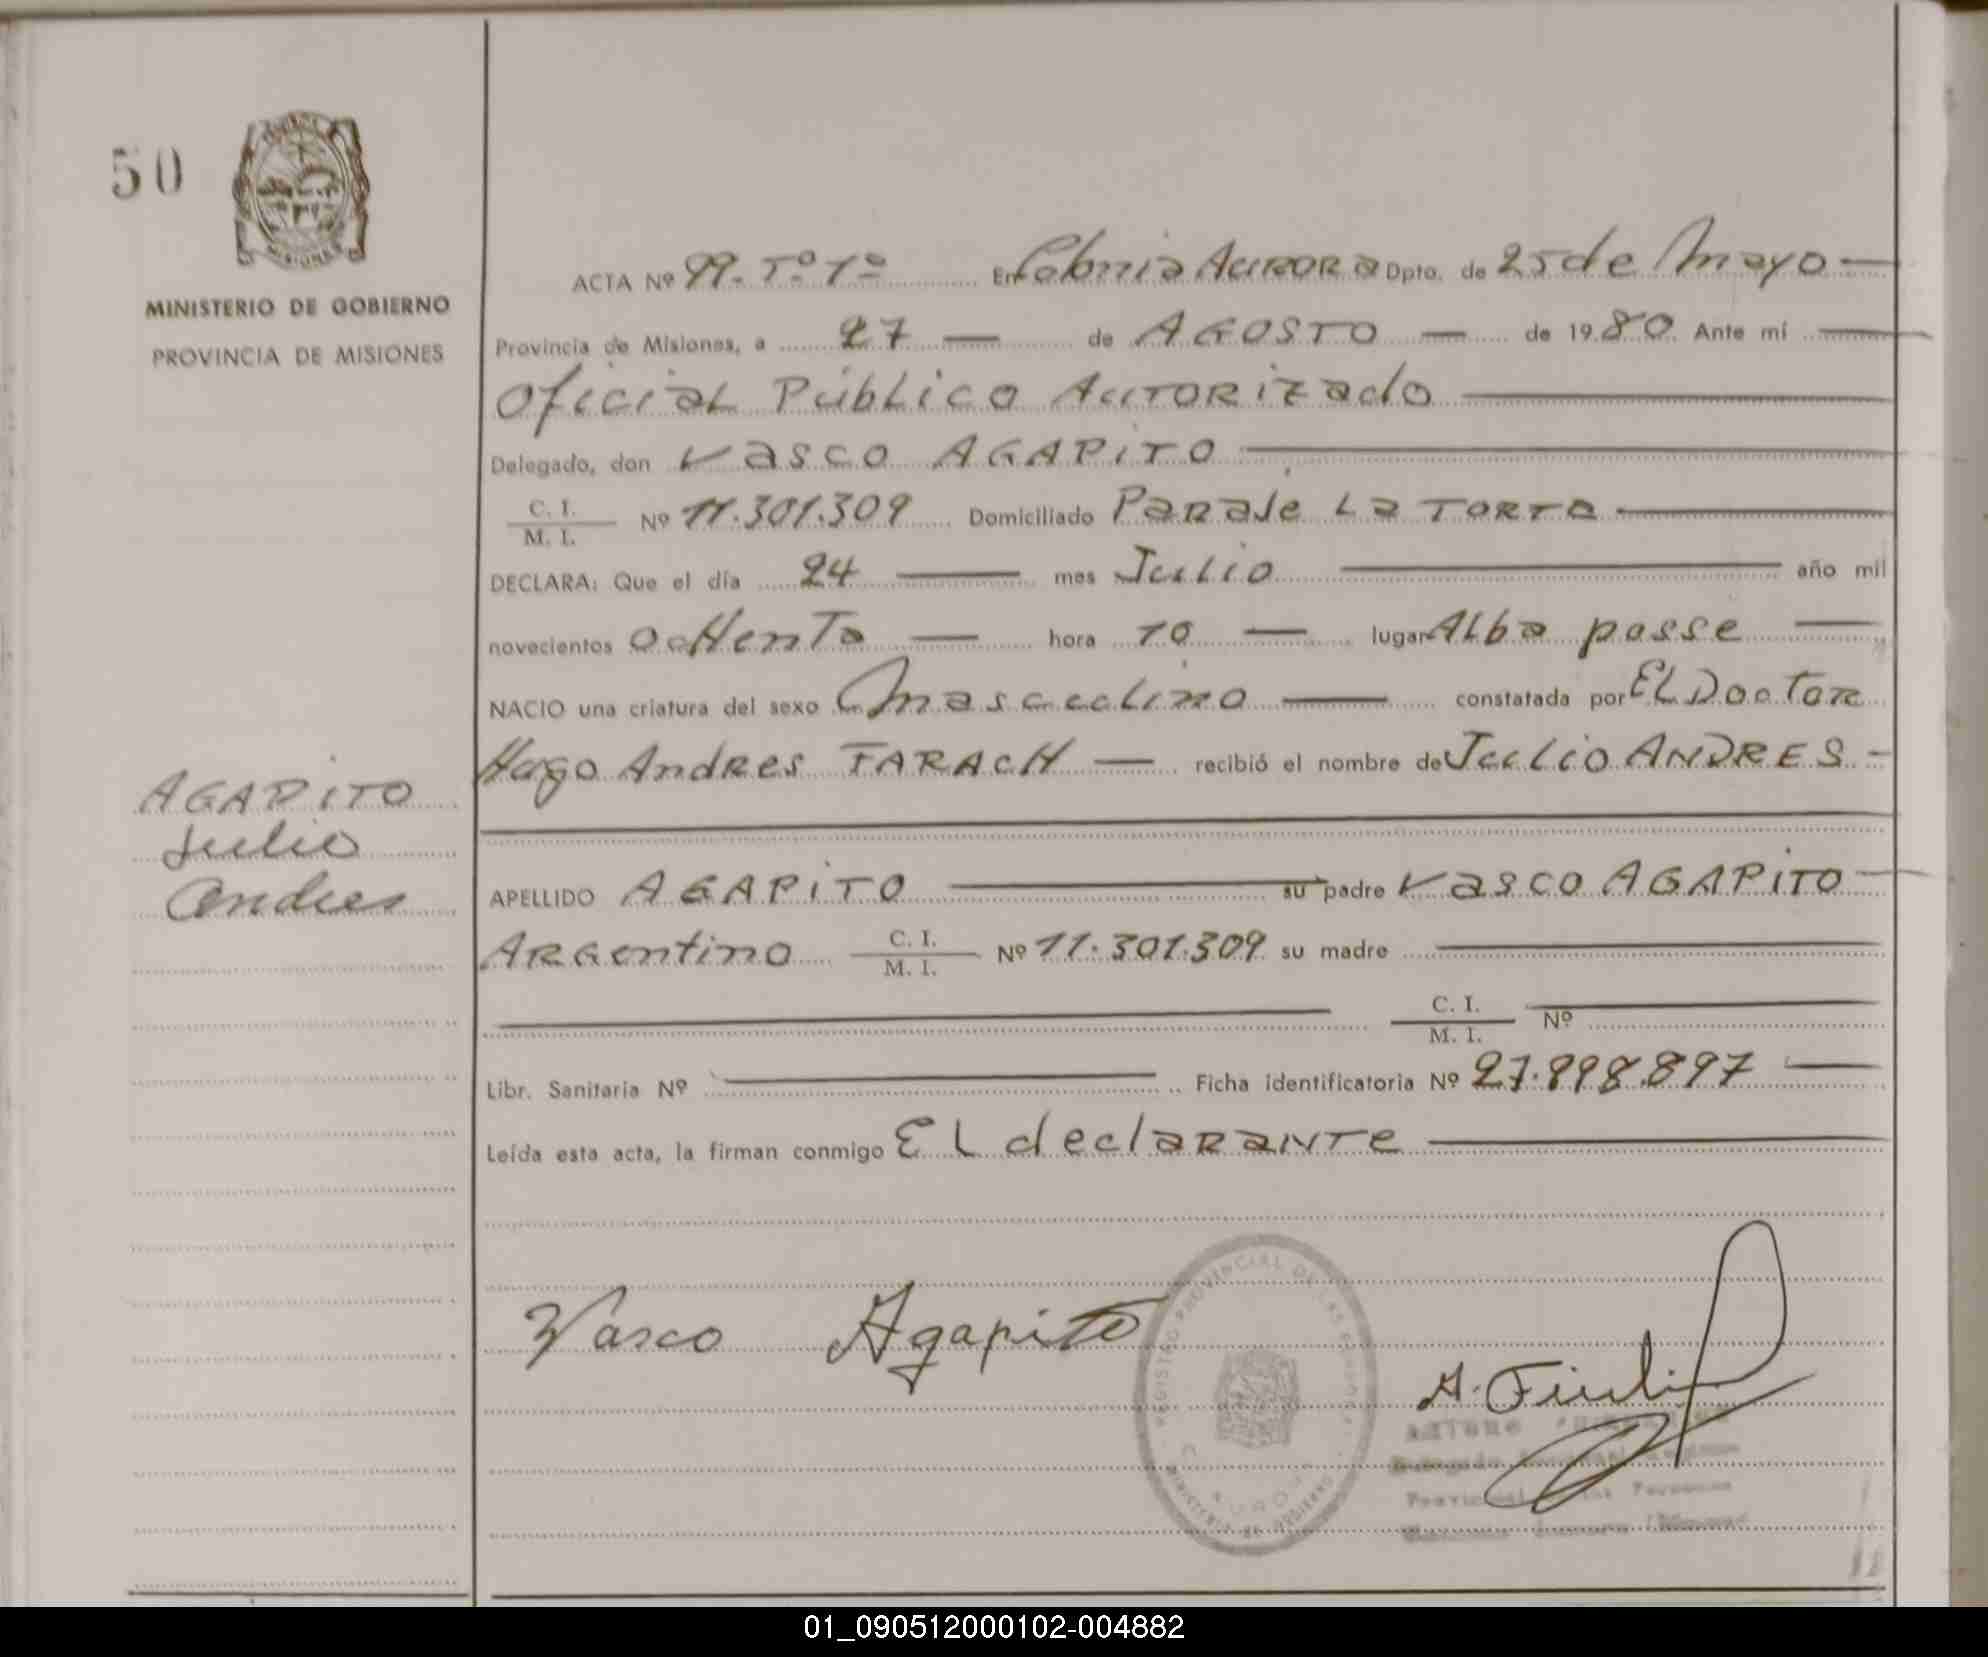 50
MISIONES
MINISTERIO DE GOBIERNO
PROVINCIA DE MISIONES
ACTA Nº 99. Tº 1º En Colonia AURORA Dpto. de 25 de Mayo
Provincia de Misiones, a 27 de AGOSTO de 1980 Ante mí
Oficial Público AUTORizado
Delegado, don Vasco AGAPITO
C. I.
M. I. Nº 11.301.309 Domiciliado Paraje La TORTA
DECLARA: Que el día 24 mes Julio año mil
novecientos OcHenTa hora 10 lugar Alba posse
NACIO una criatura del sexo Masculino constatada por EL Doctor
Hugo Andres FARACH recibió el nombre de Julio ANDRES
AGAPITO
Julio
Andres
APELLIDO AGAPITO su padre Vasco AGAPITO
ARGentino C. I.
M. I. Nº 11.301.309 su madre
C. I.
M. I. Nº
Libr. Sanitaria Nº Ficha identificatoria Nº 27.898.897
Leída esta acta, la firman conmigo EL declaRANTe
Vasco Agapito
REGISTRO PROVINCIAL DE LAS PERSONAS
MINISTERIO DE GOBIERNO
01_090512000102-004882